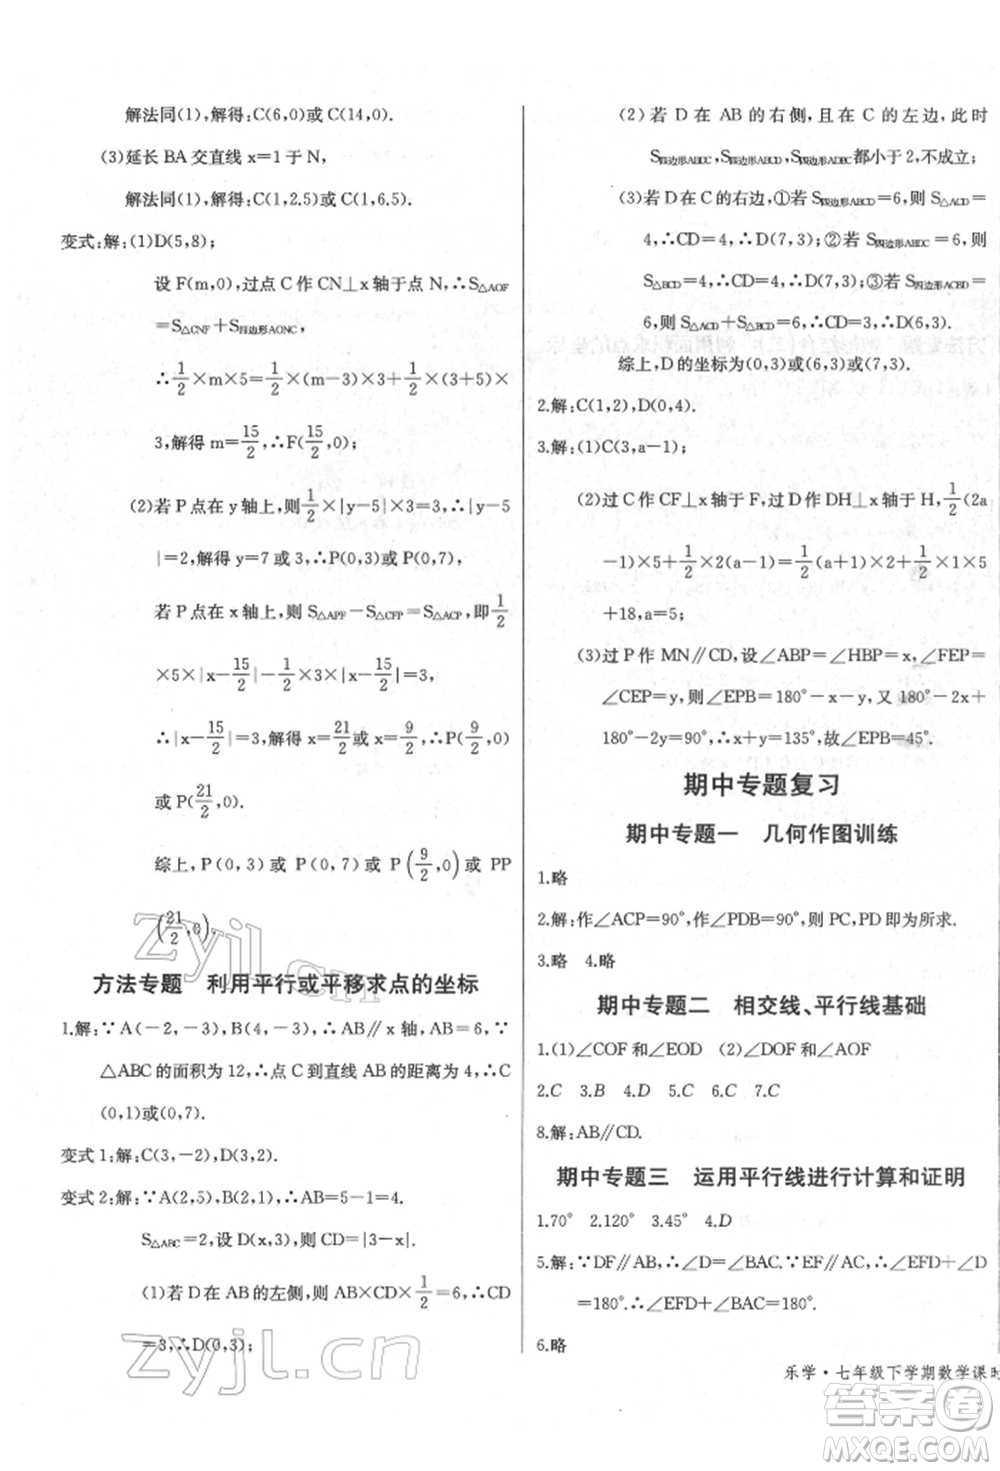 解法同(1),解得:C(6,0)或C(14,0).
(3)延长BA交直线x=1于N,
解法同(1),解得:C(1,2.5)或C(1,6.5).
变式:解:(1)D(5,8);
设F(m,0),过点C作CN⊥x轴于点N,∴S△AOF
=S△CNF+S四边形AONC,
∴1/2×m×5=1/2×(m-3)×3+1/2×(3+5)×
3,解得m=15/2,∴F(15/2,0);
(2)若P点在y轴上,则1/2×|y-5|×3=3,∴|y-5
|=2,解得y=7或3,∴P(0,3)或P(0,7).
若P点在x轴上,则S△APF-S△CFP=S△ACP,即1/2
×5×|x-15/2|-1/2×3×|x-15/2|=3,
∴|x-15/2|=3,解得x=21/2或x=9/2,∴P(9/2,0)
或P(21/2,0).
综上,P(0,3)或P(0,7)或P(9/2,0)或PP
(21/2,0).
方法专题 利用平行或平移求点的坐标
1.解:∵A(-2,-3),B(4,-3),∴AB∥x轴,AB=6,∵
△ABC的面积为12,∴点C到直线AB的距离为4,∴C
(0,1)或(0,7).
变式1:解:C(3,-2),D(3,2).
变式2:解:∵A(2,5),B(2,1),∴AB=5-1=4.
S△ABC=2,设D(x,3),则CD=|3-x|.
(1)若D在AB的左侧,则AB×CD×1/2=6,∴CD
=3,∴D(0,3);
(2)若D在AB的右侧,且在C的左边,此时
S四边形ABDC,S四边形ABCD,S四边形ADBC都小于2,不成立;
(3)若D在C的右边,①若S四边形ABCD=6,则S△ACD=
4,∴CD=4,∴D(7,3);②若S四边形ABDC=6,则
S△BCD=4,∴CD=4,∴D(7,3);③若S四边形ACBD=
6,则S△ACD+S△BCD=6,∴D(6,3).
综上,D的坐标为(0,3)或(6,3)或(7,3).
2.解:C(1,2),D(0,4).
3.解:(1)C(3,a-1);
(2)过C作CF⊥x轴于F,过D作DH⊥x轴于H,1/2(2a
-1)×5+1/2×2(a-1)=1/2(a+1)×2+1/2×1×5
+18,a=5;
(3)过P作MN∥CD,设∠ABP=∠HBP=x,∠FEP=
∠CEP=y,则∠EPB=180°-x-y,又180°-2x+
180°-2y=90°,∴x+y=135°,故∠EPB=45°.
期中专题复习
期中专题一 几何作图训练
1.略
2.解:作∠ACP=90°,作∠PDB=90°,则PC,PD即为所求.
3.略 4.略
期中专题二 相交线、平行线基础
1.(1)∠COF和∠EOD (2)∠DOF和∠AOF
2.C 3.B 4.D 5.B 6.C 7.C
8.解:AB∥CD.
期中专题三 运用平行线进行计算和证明
1.70° 2.120° 3.45° 4.D
5.解:∵DF∥AB,∴∠D=∠BAC.∵EF∥AC,∴∠EFD+∠D
=180°.∴∠EFD+∠BAC=180°.
6.略
乐学·七年级下学期数学课时
zyjl.cn
zyjl.cn
答案卷
MXQE.COM